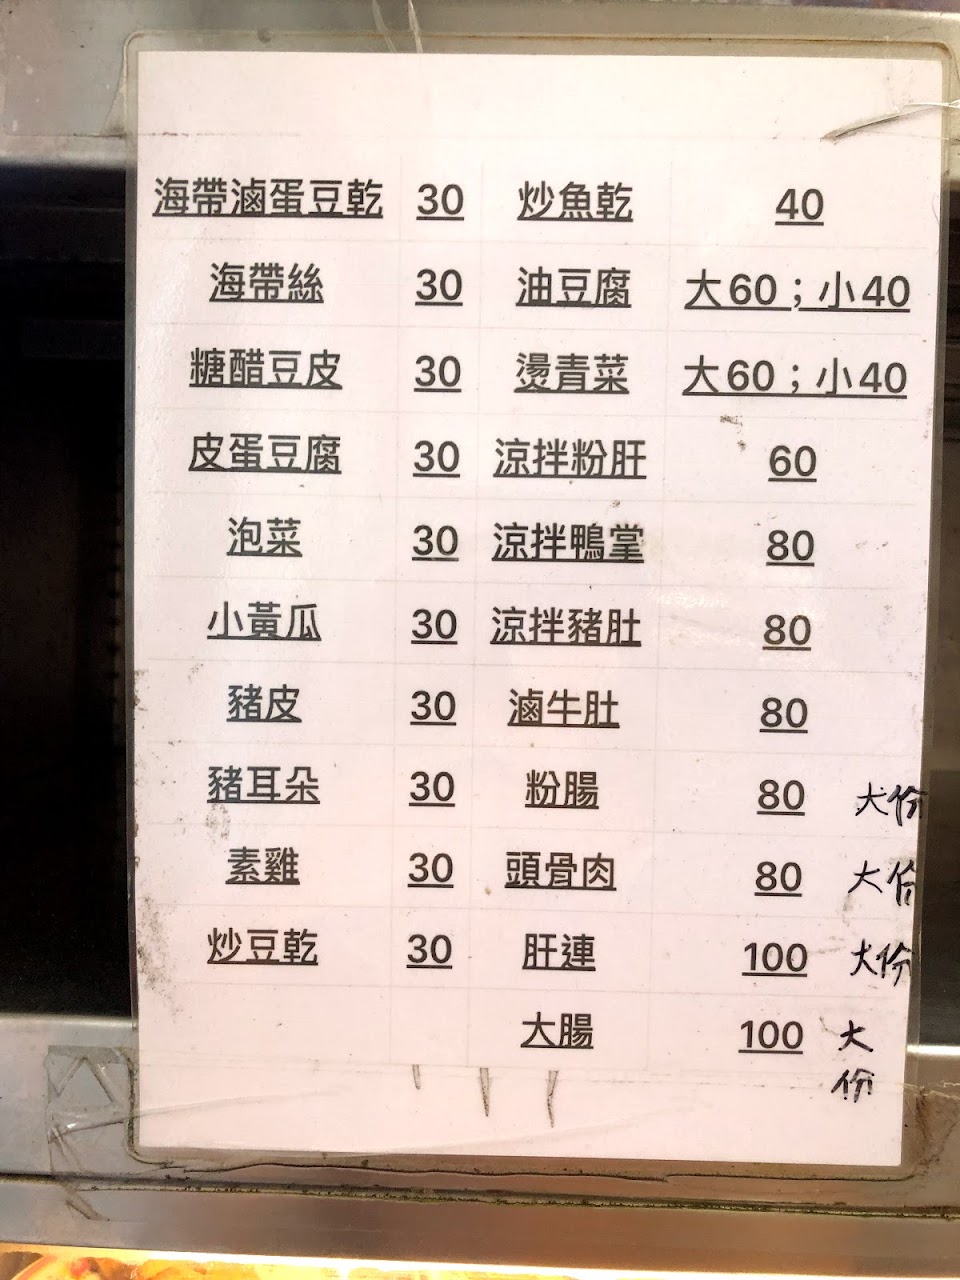 海帶滷蛋豆乾 30 炒魚乾 40
海帶絲 30 油豆腐 大60；小40
糖醋豆皮 30 燙青菜 大60；小40
皮蛋豆腐 30 涼拌粉肝 60
泡菜 30 涼拌鴨掌 80
小黃瓜 30 涼拌豬肚 80
豬皮 30 滷牛肚 80
豬耳朵 30 粉腸 80 大份
素雞 30 頭骨肉 80 大份
炒豆乾 30 肝連 100 大份
大腸 100 大
份